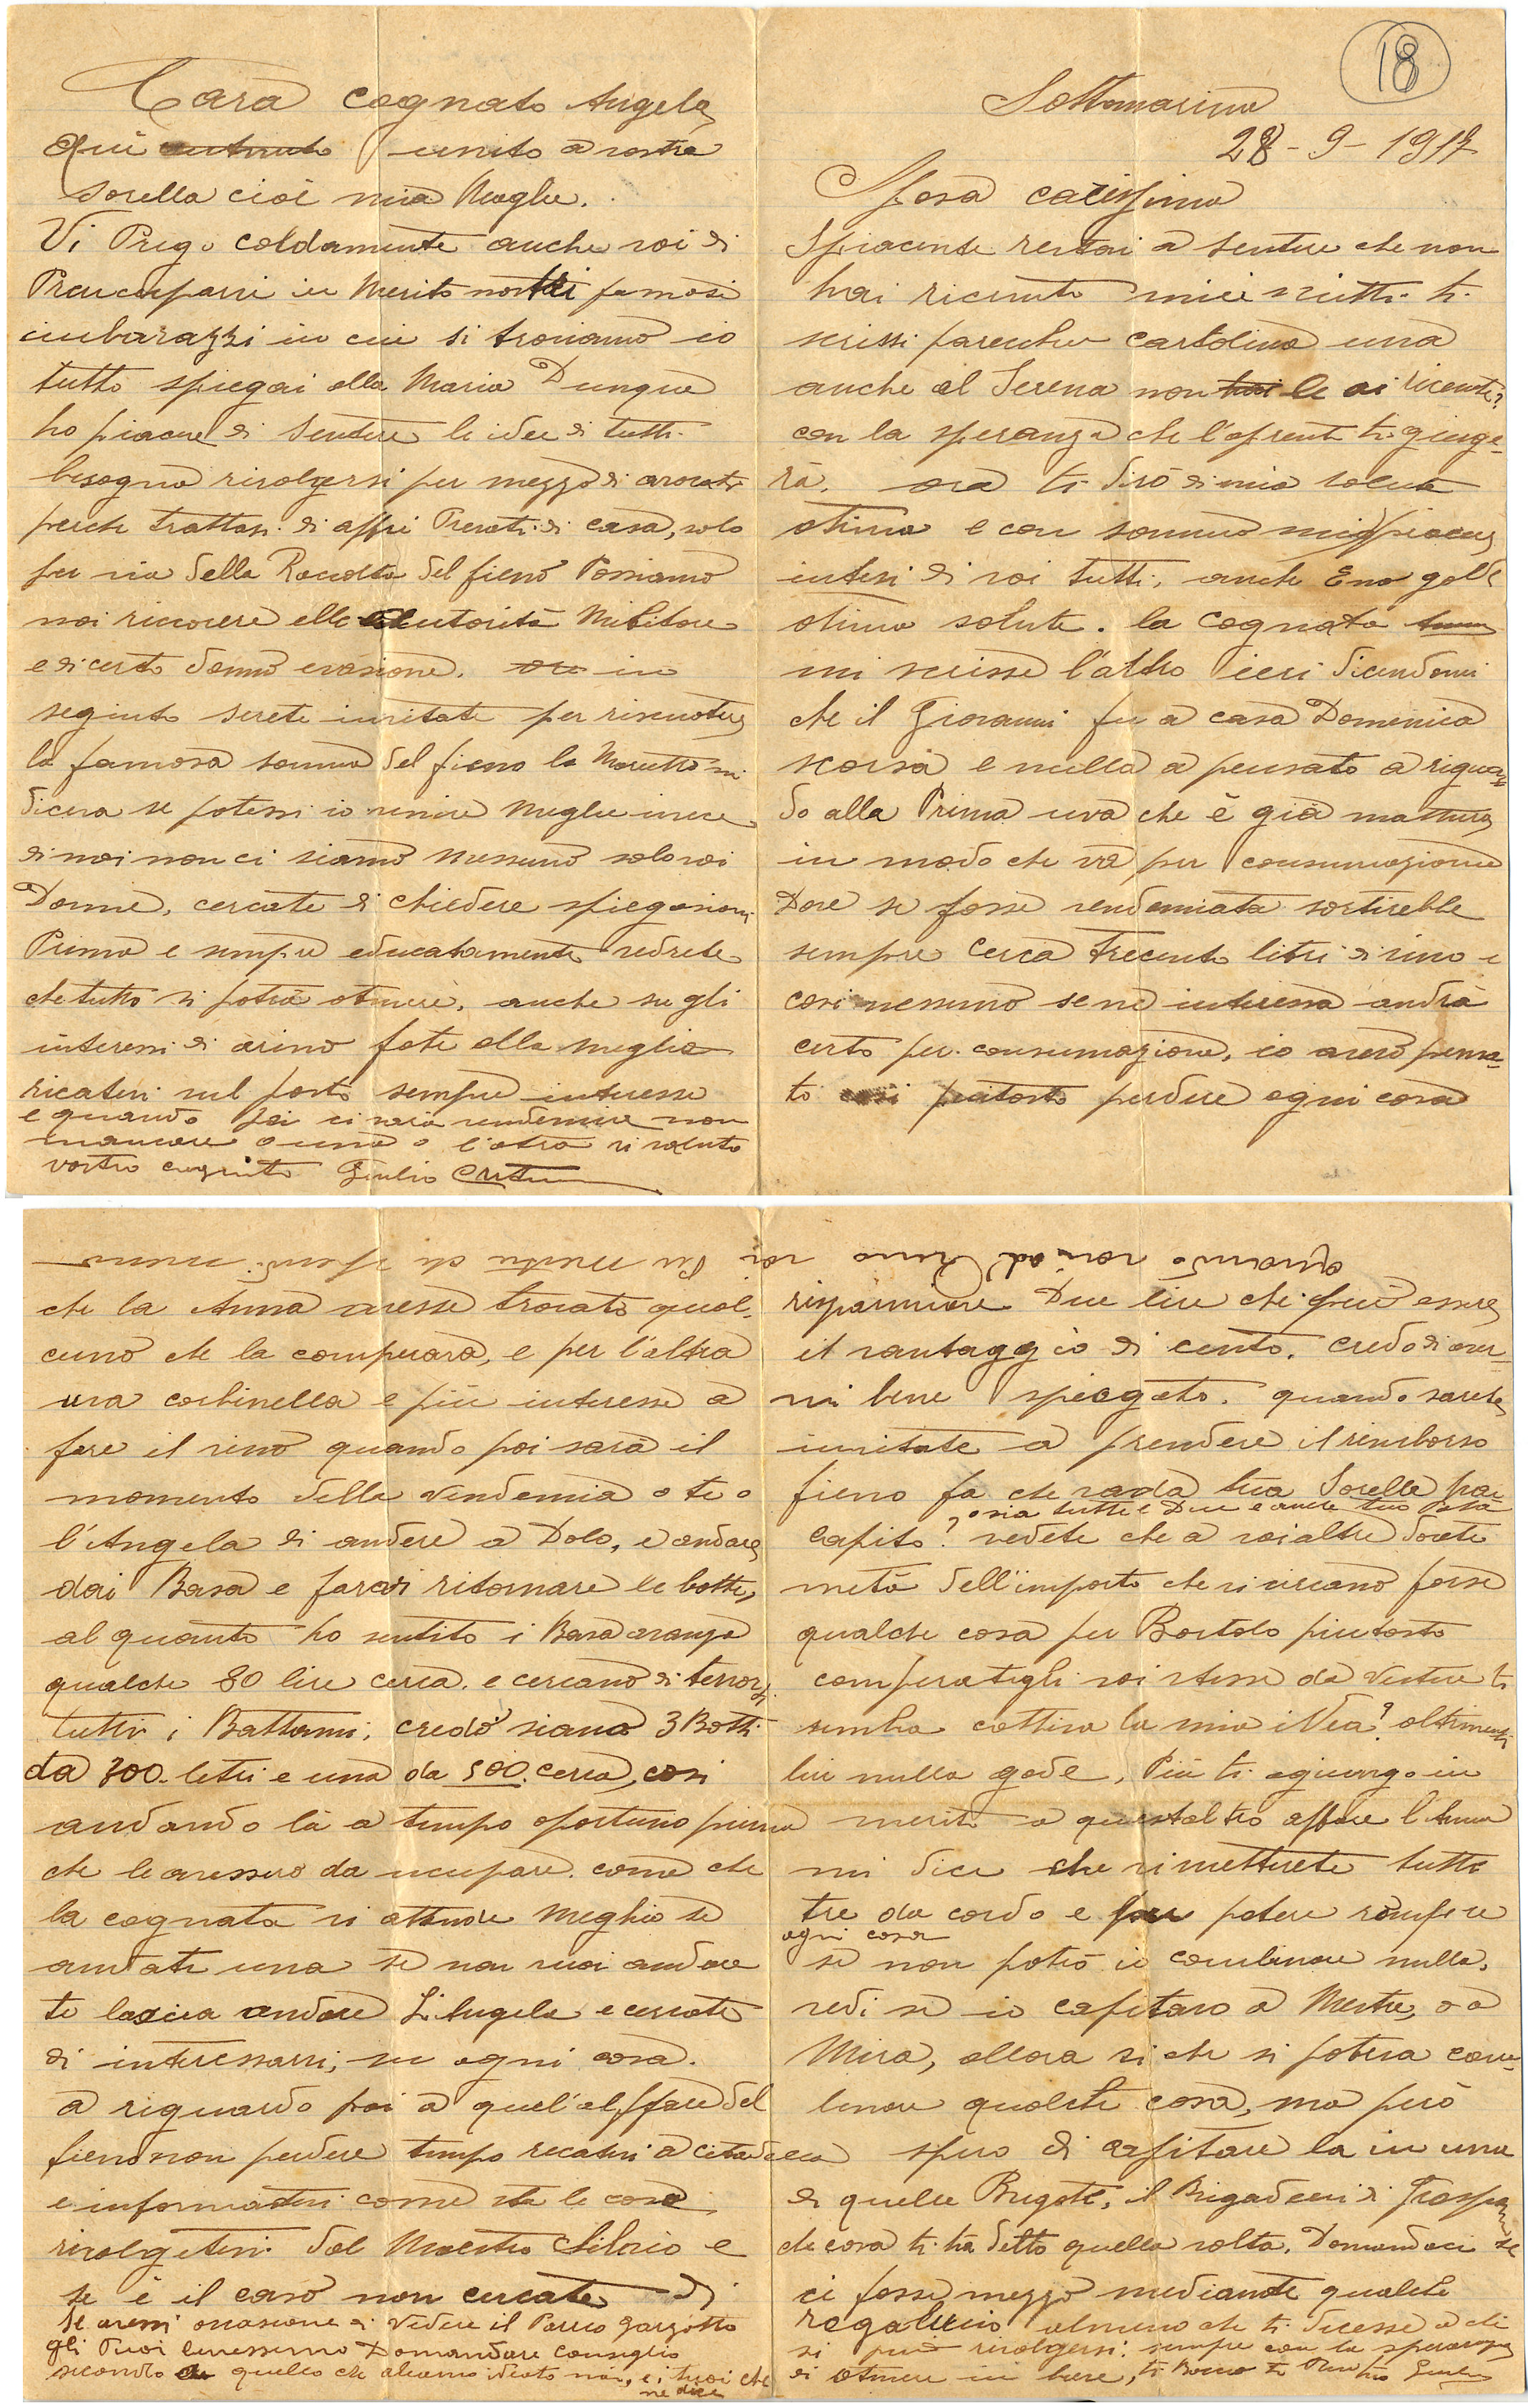 18
Sottomarina
28-9-1917
Sposa carissima
Spiacente restai a sentire che non
hai ricevuto miei scritti. ti
scrissi parechie cartolina una
anche al Serena non le ai ricevute?
con la speranza che l'aprenti ti giunge-
rà. ora ti dirò di mia salute
otima e con sommo
intesi di voi tutti, anche Eno gode
otima salute. la cognata
mi scrisse l'altro ieri dicendomi
che il Giovanni fu a casa Domenica
scorsa e nulla a pensato a riguar-
do alla Prima uva che è già mattura
in modo che va per consumazione
Dove se fosse vendemiata sortirebbe
sempre cerca trecento litri di vino e
cosi nessuno se ne interessa andrà
certo per consumazione, io avero pensa-
to piutosto perdere ogni cosa
che la Anna avesse trovato qual-
cuno che la comperava, e per l'altra
uva corbinella e più interesse a
fare il vino quando poi sarà il
momento della vendemia o te o
l'Angela di andare a Dolo, e andare
dai Basa e farvi ritornare le botte,
al quanto ho sentito i Basa avanza
qualche 80 lire cerca. e cercano di
tutti i credo siano 3 Botti
da 300 letri e una da 500 cerca, cosi
andando là a tempo oportuno prima
che le avessero da ocupare. come che
la cognata vi attende meglio se
andate una se non vuoi andare
te lascia andare L'Angela e cercate
di interessarvi, su ogni cosa.
a riguardo poi a quel'affare del
fieno non perdere tempo recatevi a Citadella
e informatevi come sta le cose
rivolgetevi dal Maestro Silvio e
se è il caso non cercate di
Se avessi occasione di vedere il Parco Garzotto
gli Puoi benessimo Domandare consiglio
secondo quello che abiamo ideato noi, e i tuoi che
ne dice
risparmiare Due lire che può essere
il vantaggio di cento. credo di aver-
mi bene spiegato. quando sarete
invitate a prendere il rimborso
fieno fa che vada tua Sorella poi
, osia tutte e Due e anche tuo
capito? vedete che a voialtre dovete
metà dell'importo che vi cercano forse
qualche cosa per Bortolo piutosto
comperategli voi stesse da vestire ti
sembra cattiva la mia iDea? altrimenti
lui nulla gode, Più ti agiungo in
merito a quest'altro affare l'Anna
mi dice che vi metterete tutte
tre da cordo e per potere rompere
ogni cosa
se non potrò io combinare nulla.
vedi se io capitavo a Mestre, o a
Mira, allora si che si poteva com-
binare qualche cosa, ma però
spero di capitare la in una
di quelle Brigate, il Brigadieri di
che cosa ti ha detto quella volta. Domandaci se
ci fosse mezzo mediante qualche
regaluccio almeno che ti dicesse a chi
si può rivolgersi: sempre con la speranza
di otenere in bene, ti Bacio tuo Giulio
Quando vai ad Anna
Cara cognata Angela
Qui unito a vostra
sorella cioè mia Moglie.
Vi Prego caldamente anche voi di
Preucuparvi in merito nostri famosi
imbarazzi in cui si troviamo io
tutto spiegai alla Maria Dunque
ho piacere di sentire le idee di tutti.
bisogna rivolgersi per mezzo di avocato
perche trattasi di affri Privati di casa, solo
per via della Racolta del fieno Possiamo
noi ricorere alle autorità Militare
e di certo danno evasione. in
seguito sarete invitate per riscuotere
la famosa somma del fieno la Marietta mi
diceva se potessi io venire meglio invece
di noi non ci siamo nessuno solo voi
Donne, cercate di chiedere spiegazioni
Prima e sempre educatamente vedrete
che tutto si potrà otenere. anche su gli
interessi di arino fate alla meglio
recatevi sul posto sempre interesse
e quando poi ci sarà vendemia non
mancare o una o l'altra vi saluto
vostro cognato Giulio